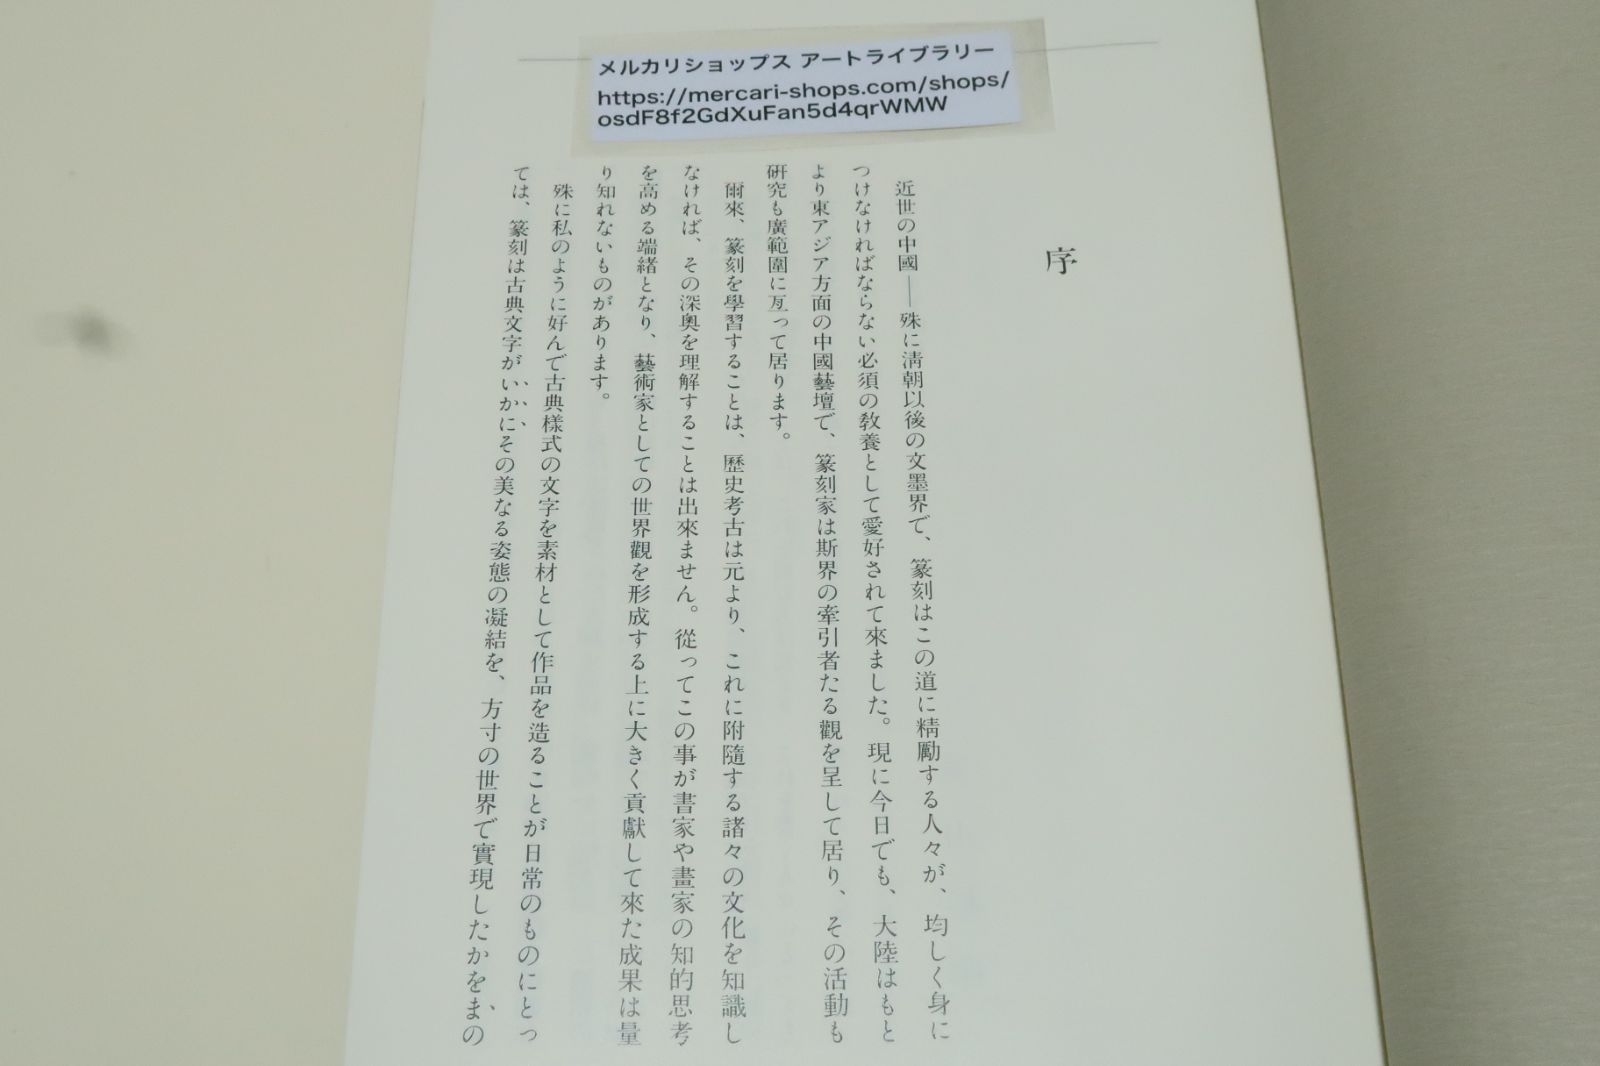 メルカリショップス アートライブラリー
https://mercari-shops.com/shops/
osdF8f2GdXuFan5d4qrWMW
序
近世の中國――殊に淸朝以後の文墨界で、篆刻はこの道に精勵する人々が、均しく身に
つけなければならない必須の敎養として愛好されて來ました。現に今日でも、大陸はもと
より東アジア方面の中國藝壇で、篆刻家は斯界の牽引者たる觀を呈して居り、その活動も
硏究も廣範圍に亙って居ります。
爾來、篆刻を學習することは、歷史考古は元より、これに附隨する諸々の文化を知識し
なければ、その深奧を理解することは出來ません。從ってこの事が書家や畫家の知的思考
を高める端緒となり、藝術家としての世界觀を形成する上に大きく貢獻して來た成果は量
り知れないものがあります。
殊に私のように好んで古典樣式の文字を素材として作品を造ることが日常のものにとっ
ては、篆刻は古典文字がいかにその美なる姿態の凝結を、方寸の世界で實現したかをまの